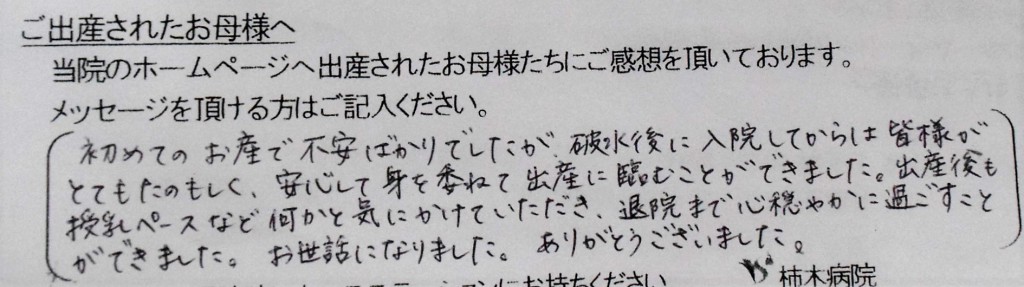 ご出産されたお母様へ
当院のホームページへ出産されたお母様たちにご感想を頂いております。
メッセージを頂ける方はご記入ください。
初めてのお産で不安ばかりでしたが、破水後に入院してからは皆様が
とてもたのもしく、安心して身を委ねて出産に臨むことができました。出産後も
授乳ペースなど何かと気にかけていただき、退院まで心穏やかに過ごすこと
ができました。お世話になりました。ありがとうございました。
ーションにお持ちください
柿木病院